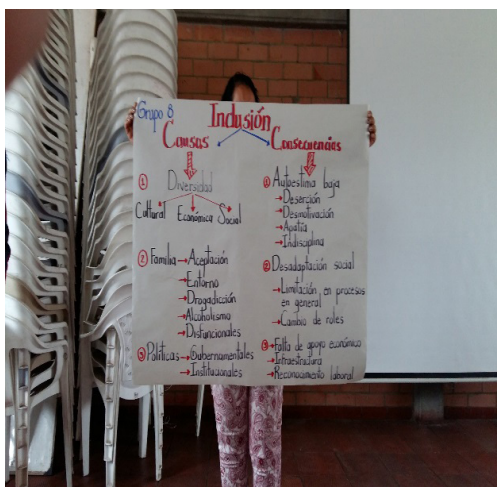 Grupo 8
Inclusión
Causas
① Diversidad
Cultural Económica Social
② Familia → Aceptación
→ Entorno
→ Drogadicción
→ Alcoholismo
→ Disfuncionales
③ Políticas → Gubernamentales
→ Institucionales
Consecuencias
① Autoestima baja
→ Deserción
→ Desmotivación
→ Apatía
→ Indisciplina
② Desadaptación social
→ Limitación en procesos
en general
→ Cambio de roles
③ → Falta de apoyo económico
→ Infraestructura
→ Reconocimiento laboral